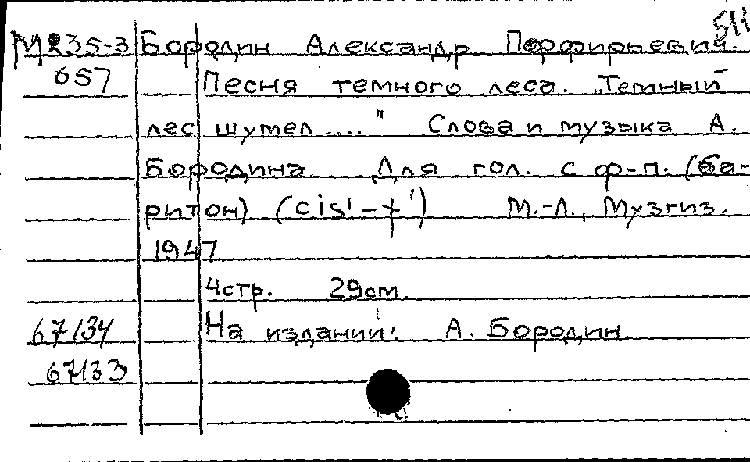 511
М235-3 Бородин Александр Порфирьевич.
657 Песня темного леса. "Темный
лес шумел...." Слова и музыка А.
Бородина. Для гол. с ф-п. (ба-
ритон) (cis'-f') М.-Л., Музгиз.
1947
4стр. 29см.
67134 На издании: А. Бородин
67133